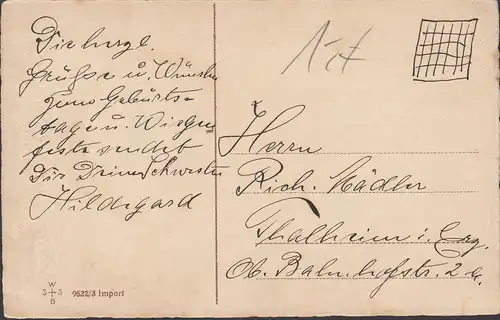 Die herzl.
Grüße u. Wünsche
zum Geburts-
tage u. Wiegen
feste sendet
Dir Deine Schwester
Hildegard
Herrn
Rich. Mädler
Thalheim i. Erzg.
Ob. Bahnhofstr. 2
W
S S
B
9622/3 Import